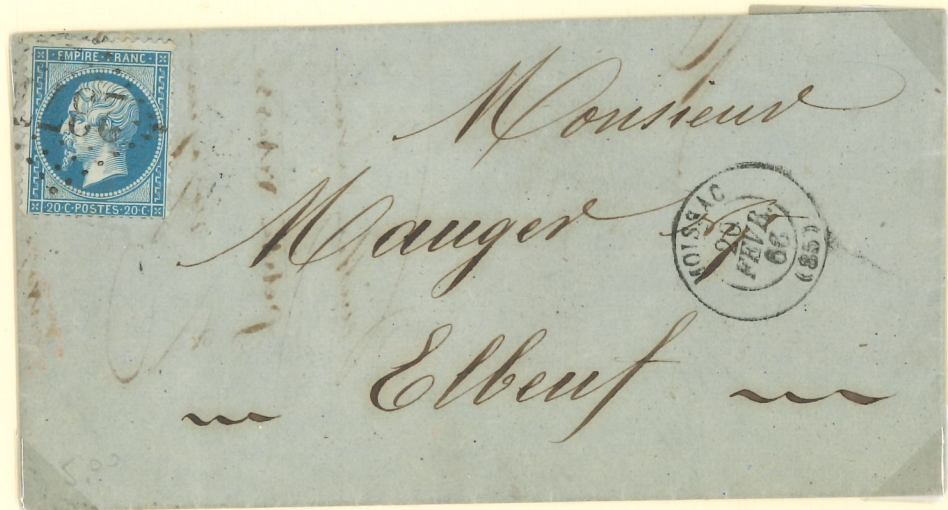 EMPIRE FRANC
20·C·POSTES·20·C
Monsieur
Mauger
Elbeuf
MOISSAC
FEVR.
66